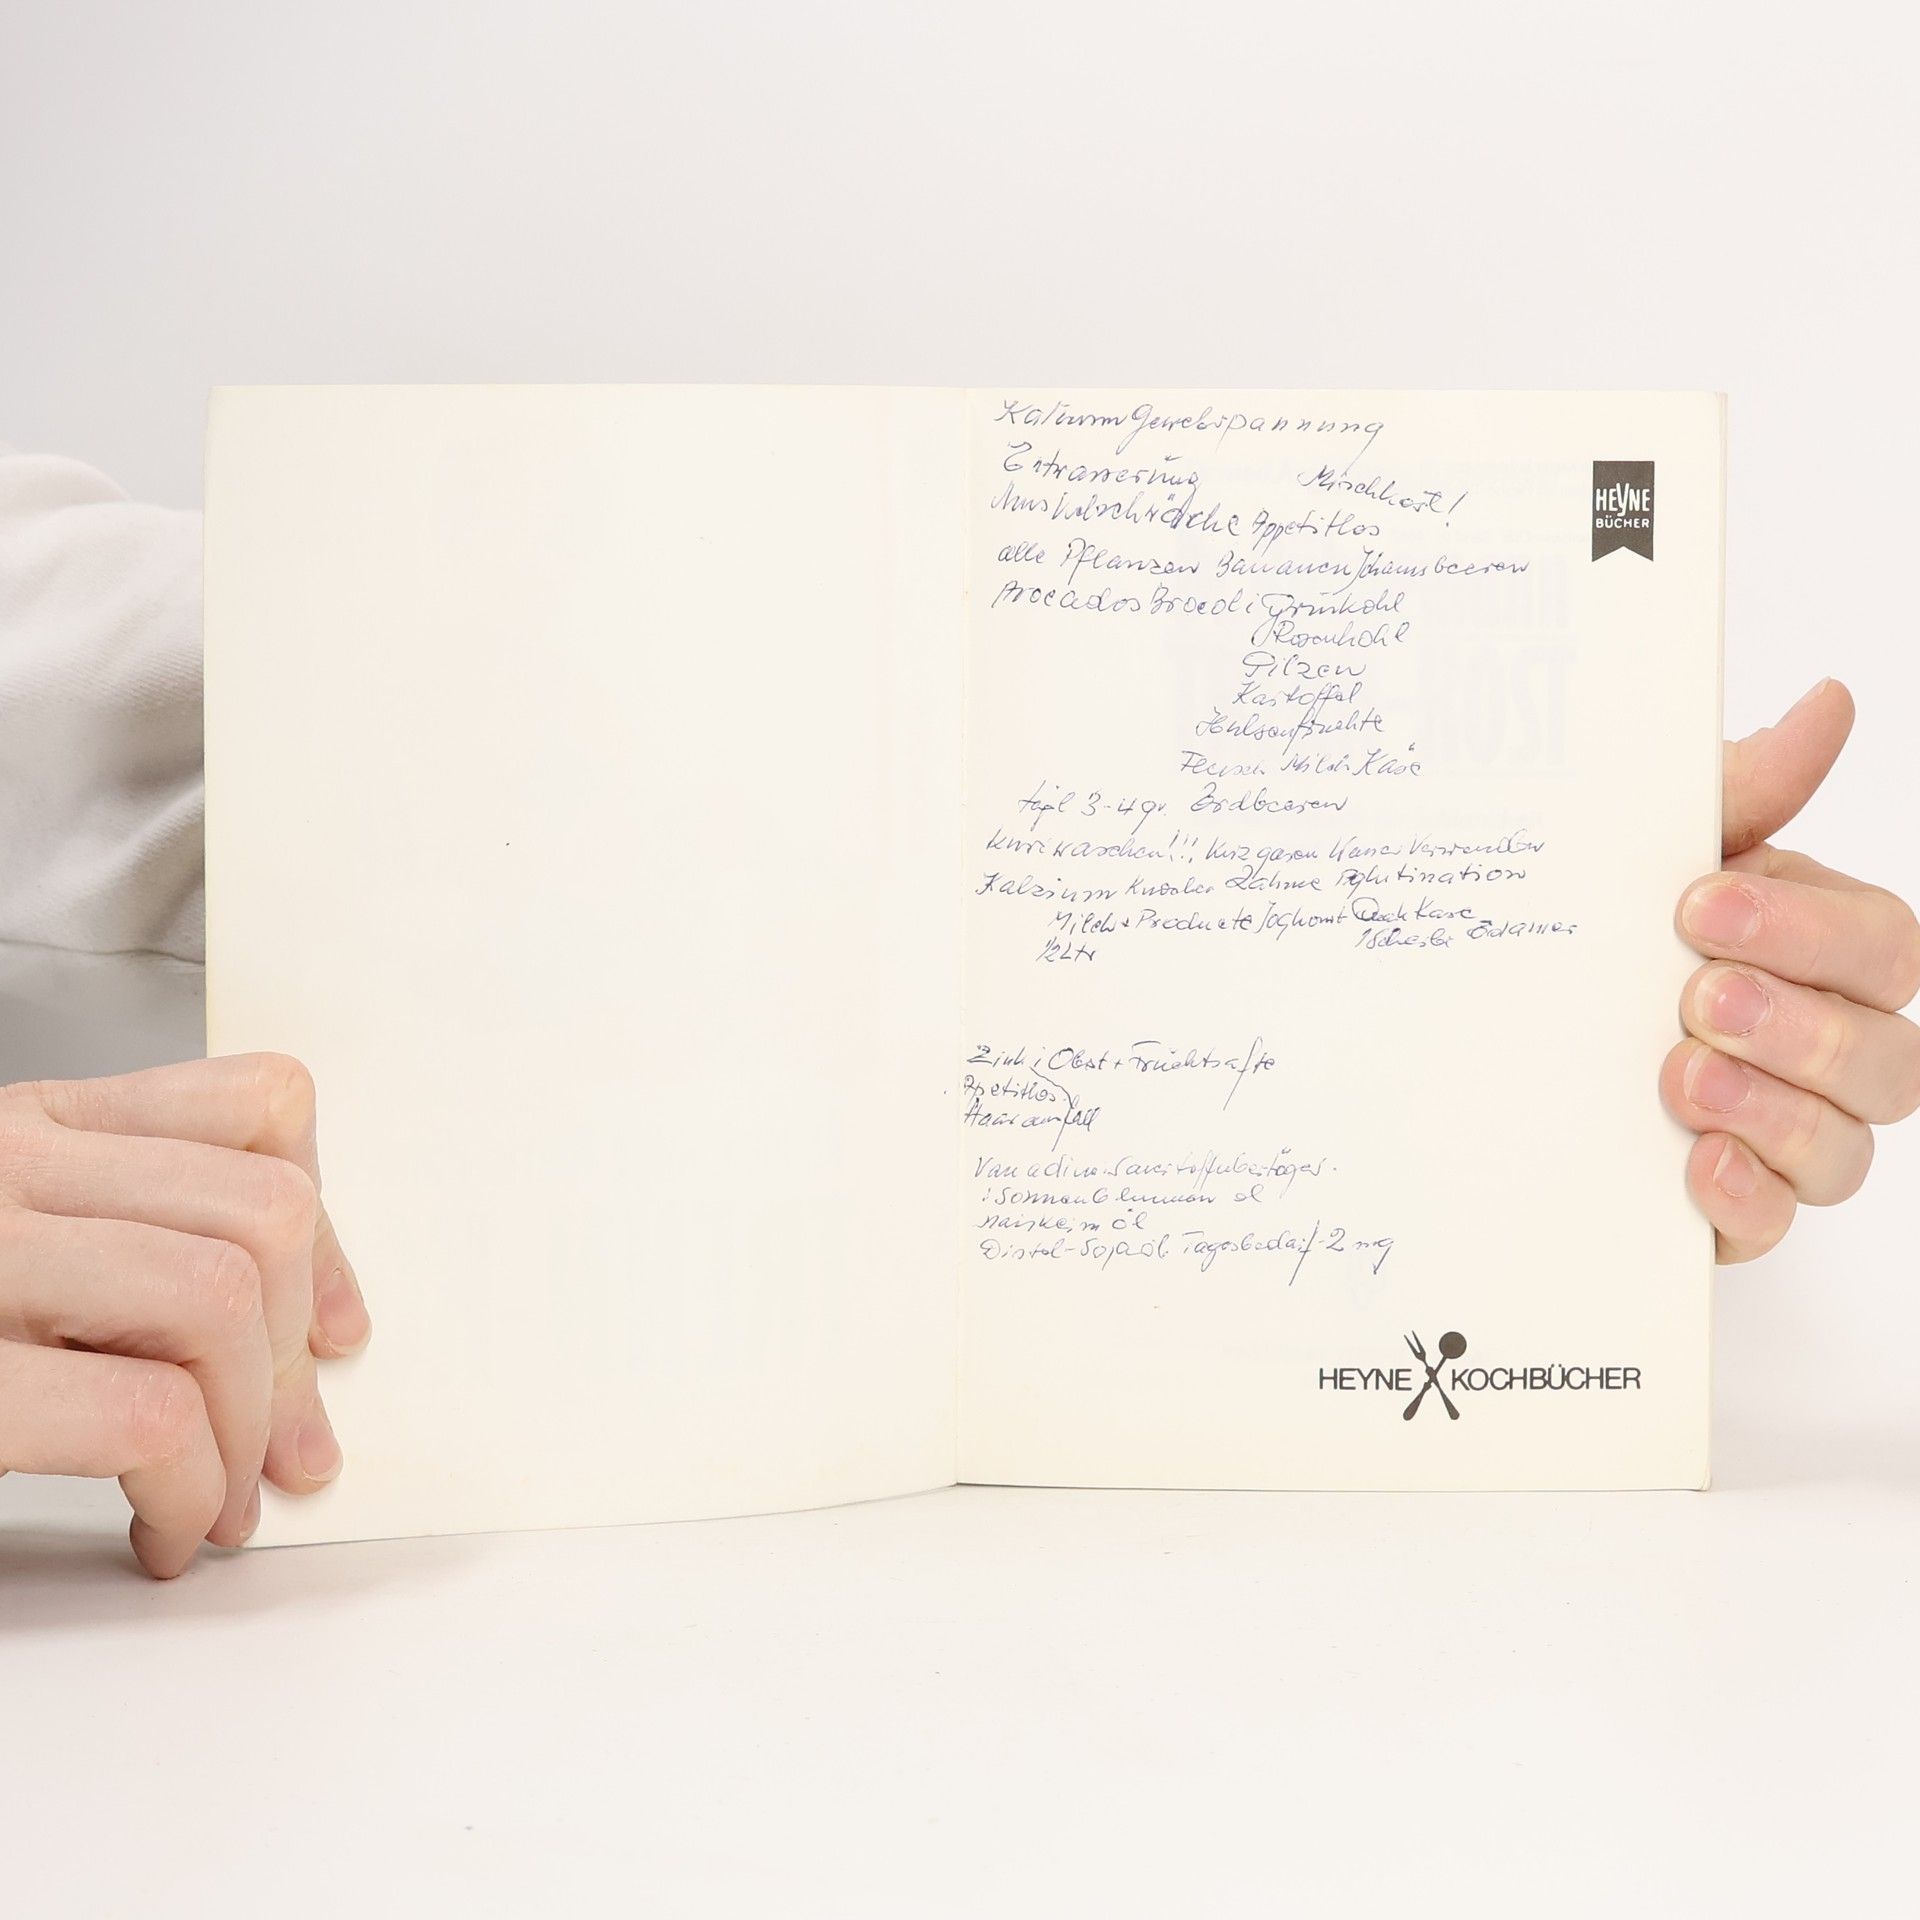 Kalium Gewebspannung
Entwasserung Mischkost!
Muskelschwäche Appetitlos
alle Pflanzen Bananen Johannsbeeren
Avocados Brocoli Grünkohl
Rosenkohl
Pilzen
Kartoffel
Hulsenfruchte
Fleisch Milch Käse
tägl 3-4 gr. Erdbeeren
kurz waschen!!! Kurz garen Wasser Verwenden
Kalzium Knochen Zähne
Milch + Producte Joghourt Quark Kase
1 Scheibe Edamer
1/2 Ltr
Zink i Obst + Früchtsafte
Apetitlos
Haarausfall
Vanadium: Sauerstoffuberträger.
: Sonnenblumen öl
Maiskeim Öl
Distel-Sojaöl. Tagesbedarf-2 mg
HEYNE
BÜCHER
HEYNE KOCHBÜCHER